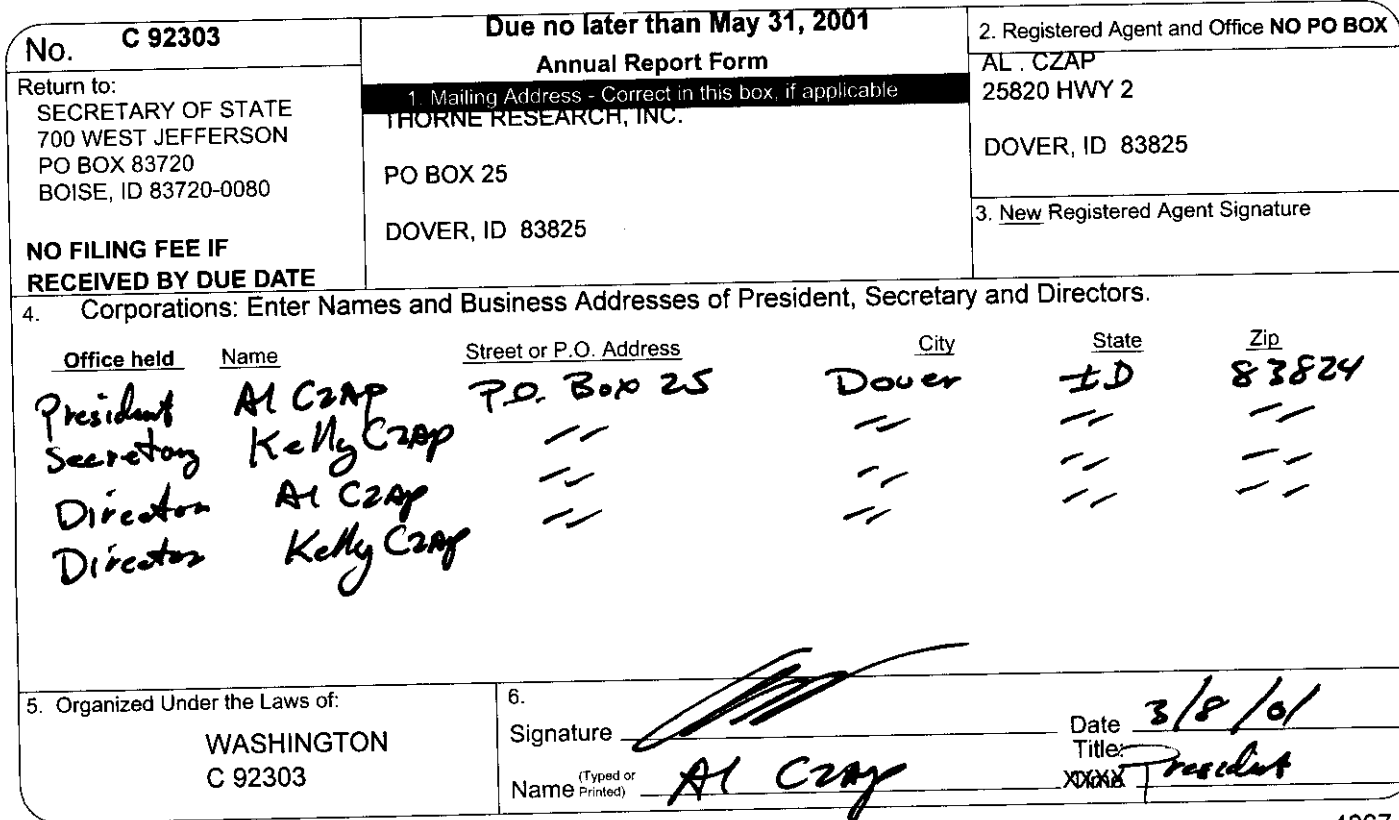 No. C 92303
Return to:
SECRETARY OF STATE
700 WEST JEFFERSON
PO BOX 83720
BOISE, ID 83720-0080
NO FILING FEE IF
RECEIVED BY DUE DATE
Due no later than May 31, 2001
Annual Report Form
1. Mailing Address - Correct in this box, if applicable
THORNE RESEARCH, INC.
PO BOX 25
DOVER, ID 83825
2. Registered Agent and Office NO PO BOX
AL . CZAP
25820 HWY 2
DOVER, ID 83825
3. New Registered Agent Signature
4. Corporations: Enter Names and Business Addresses of President, Secretary and Directors.
Office held Name Street or P.O. Address City State Zip
President Al Czap P.O. Box 25 Dover ID 83824
Secretary Kelly Czap " " " "
Director Al Czap " " " "
Director Kelly Czap " " " "
5. Organized Under the Laws of:
WASHINGTON
C 92303
6.
Signature Date 3/8/01
Name (Typed or Printed) Al Czap Title: President